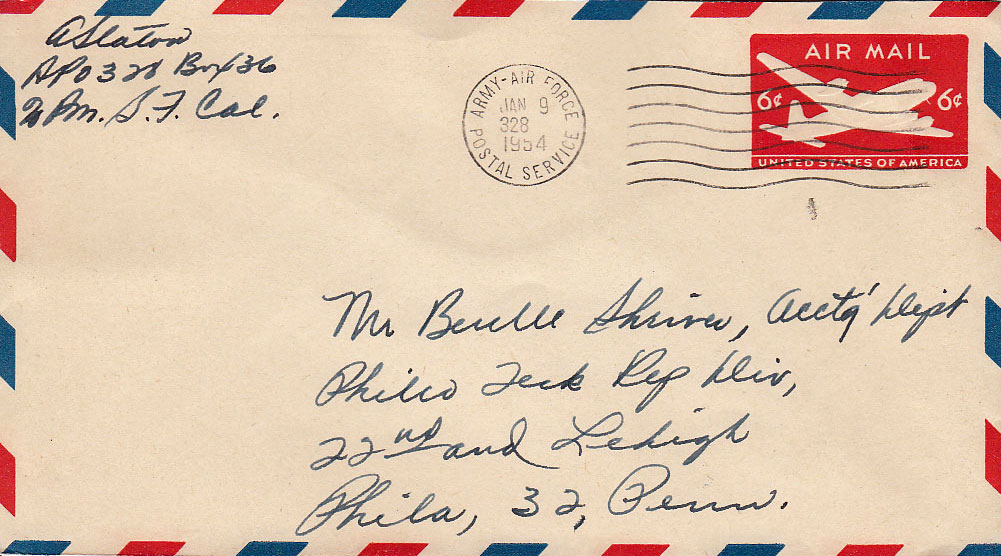 A Slaton
APO 328 Box 36
% Pm. S.F. Cal.
ARMY-AIR FORCE
JAN 9
328
1954
POSTAL SERVICE
AIR MAIL
6¢ 6¢
UNITED STATES OF AMERICA
Mr Berelle Shriver, Acct'g Dept
Philco Teck Rep Div,
22nd and Lehigh
Phila, 32, Penn.